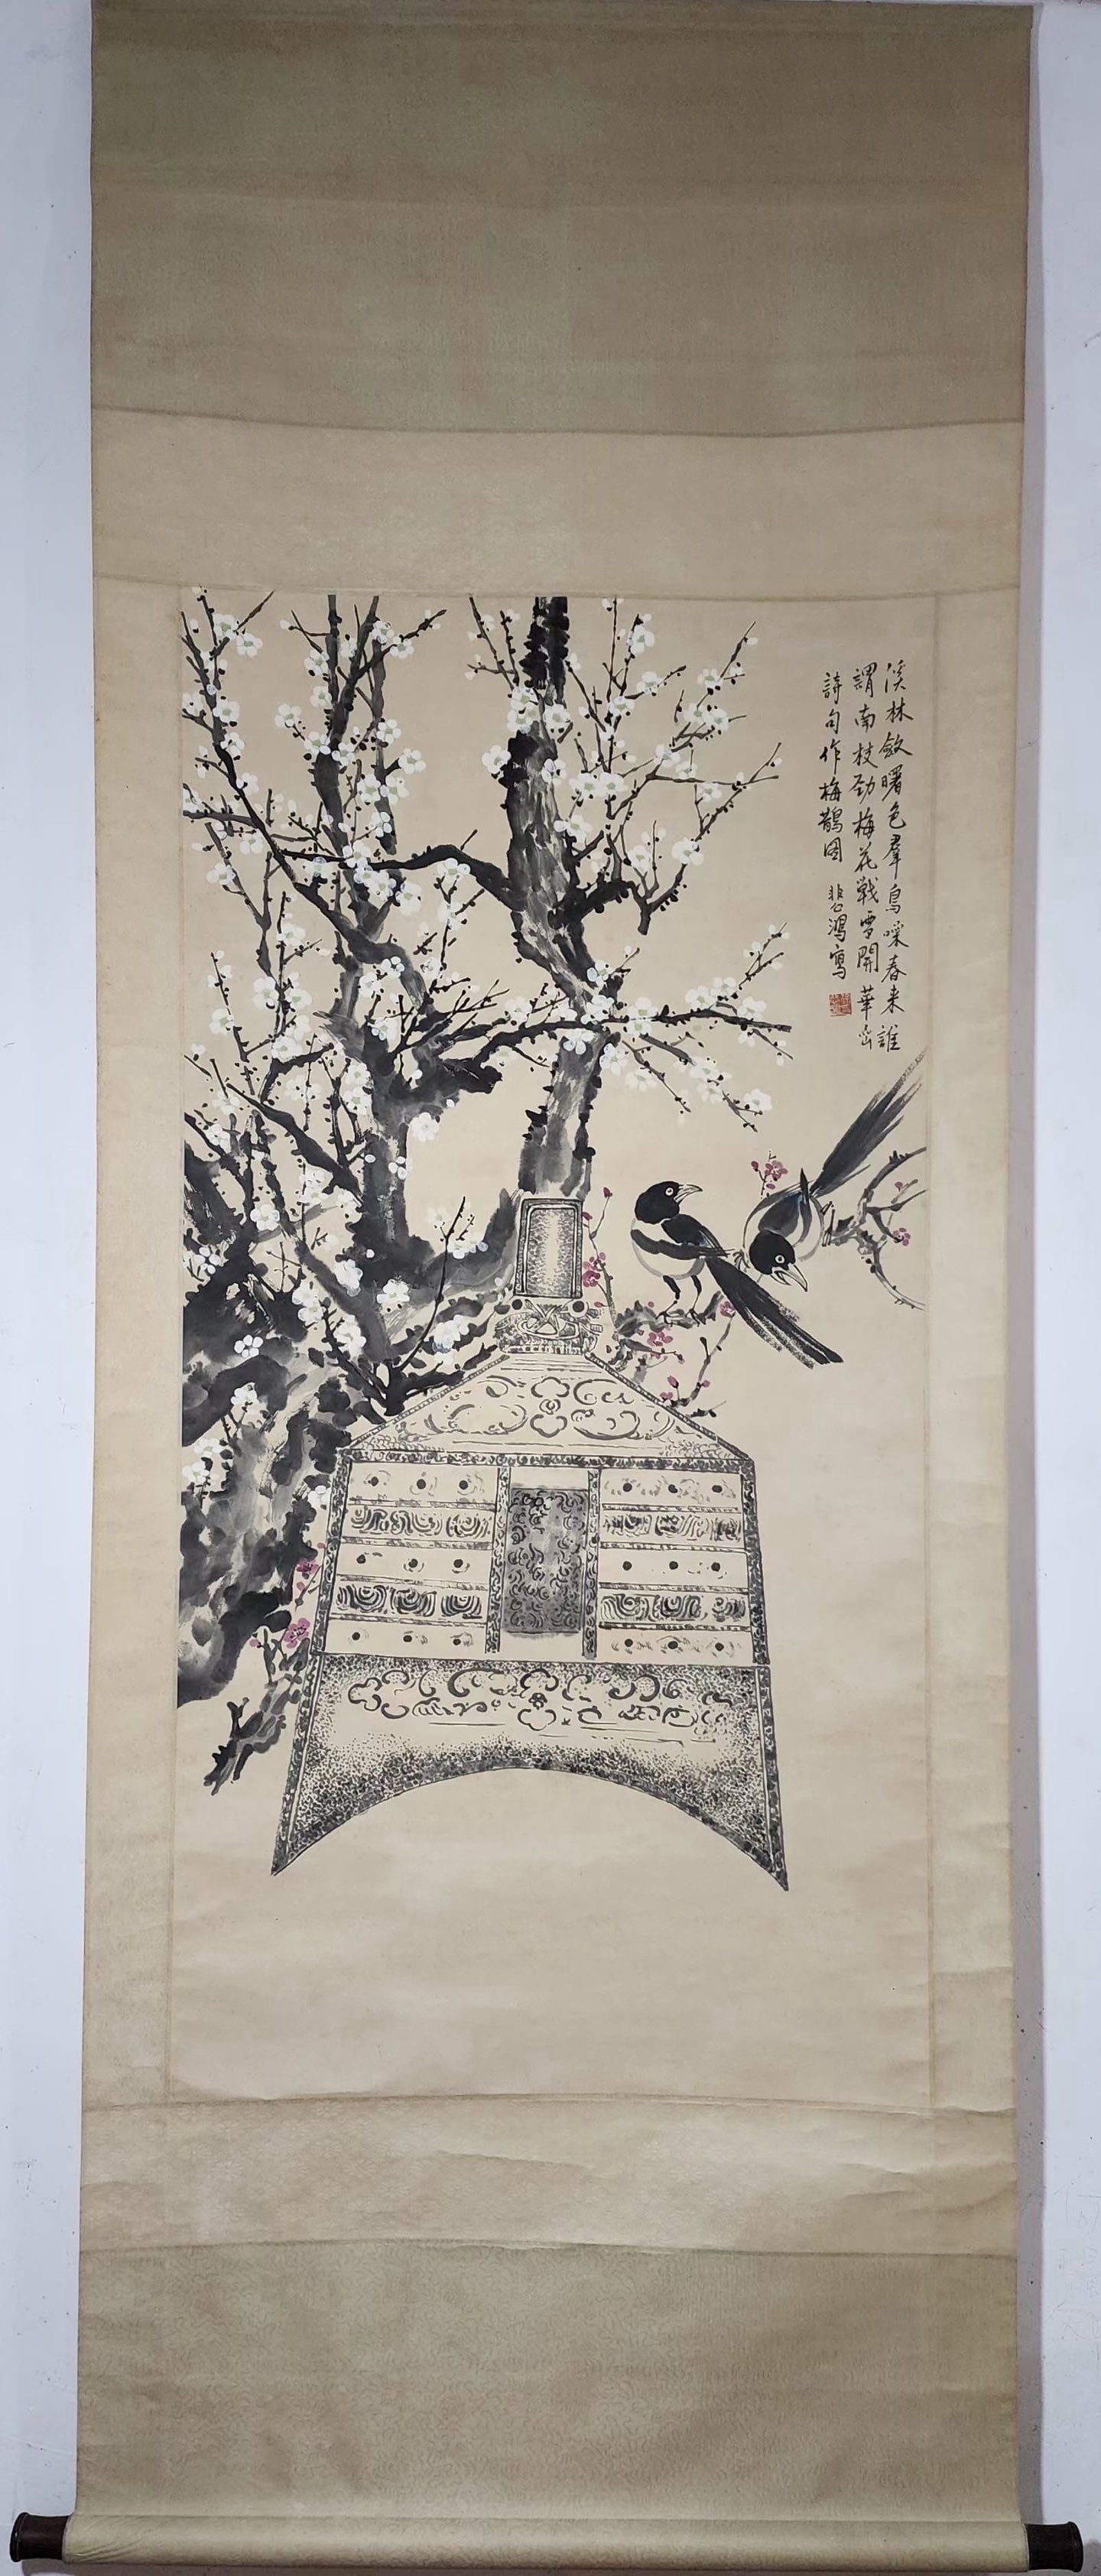 溪林斂曙色羣鳥噪春来誰
謂南枝勁梅花戰雪開 華嵒
詩句作梅鵲图 悲鴻寫